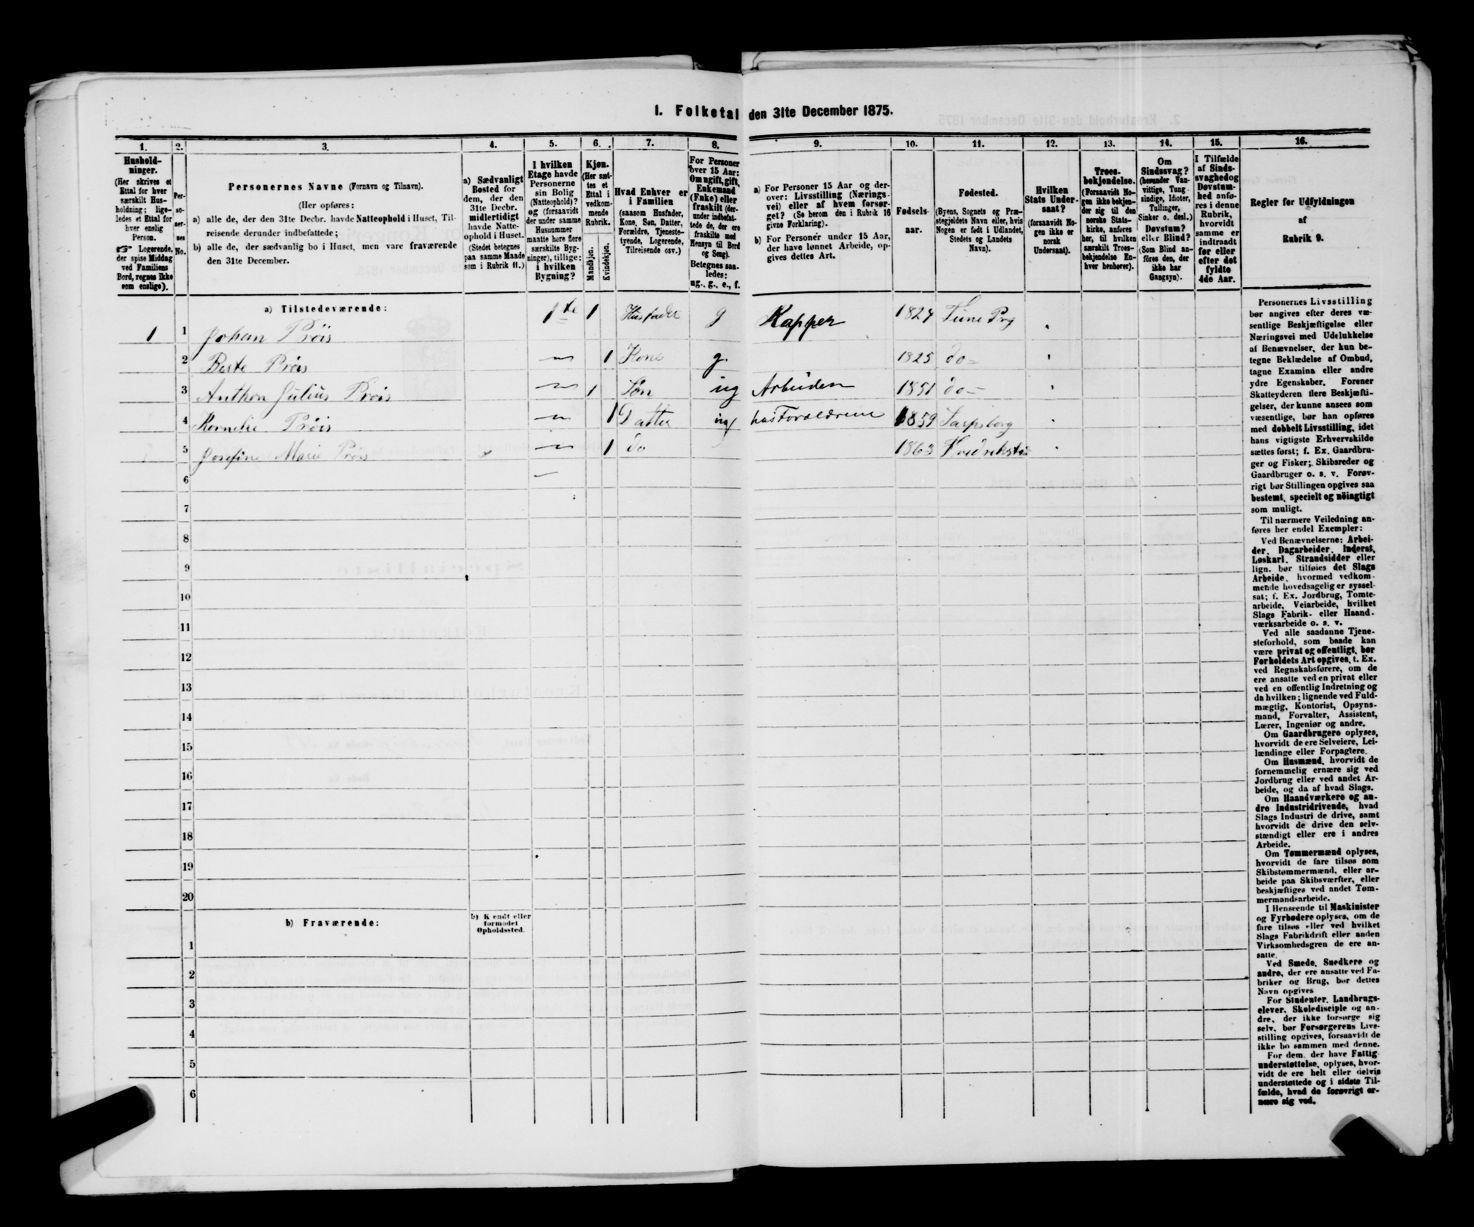 1. Folketal den 31te December 1875.
1.
Hushold-
ninger.
(Her skrives et
Ettal for hver
særskilt Hus-
holdning; lige-
ledes et Ettal for
hver enslig
Person.
☞ Logerende,
der spise Middag
ved Familiens
Bord, regnes ikke
som enslige).
2.
Per-
so-
ner-
nes
No.
3.
Personernes Navne (Fornavn og Tilnavn).
(Her opføres:
a) alle de, der den 31te Decbr. havde Natteophold i Huset, Til-
reisende derunder indbefattede;
b) alle de, der sædvanlig bo i Huset, men vare fraværende
den 31te December.
4.
a) Sædvanligt
Bosted for
dem, der den
31te Decbr.
midlertidigt
havde Natte-
ophold i Huset.
(Stedet betegnes
paa samme Maade
som i Rubrik 11.)
5.
I hvilken
Etage havde
Personerne
sin Bolig
(Natteophold)?
og (forsaavidt
der under samme
Husnummer
maatte høre flere
særskilte Byg-
ninger), tillige:
i hvilken
Bygning?
6.
Kjøn.
(Her sæt-
tes et
Ettal i
vedkom-
mende
Rubrik.
Mandkjøn.
Kvindekjøn.
7.
Hvad Enhver er
i Familien
(saasom Husfader,
Kone, Søn, Datter,
Forældre, Tjeneste-
tyende, Logerende,
Tilreisende osv.)
8.
For Personer
over 15 Aar:
Om ugift, gift,
Enkemand
(Enke) eller
fraskilt (der-
under indbefat-
tede de, der ere
fraskilte med
Hensyn til Bord
og Seng).
Betegnes saa-
ledes:
ug., g., e., f.
9.
a) For Personer 15 Aar og der-
over: Livsstilling (Nærings-
vei) eller af hvem forsør-
get? (Se herom den i Rubrik 16
givne Forklaring).
b) For Personer under 15 Aar,
der have lønnet Arbeide, op-
gives dettes Art.
10.
Fødsels-
aar.
11.
Fødested.
(Byens, Sognets og Præ-
stegjeldets Navn eller, hvis
Nogen er født i Udlandet,
Stedets og Landets
Navn).
12.
Hvilken
Stats Under-
saat?
(forsaavidt No-
gen ikke er
norsk
Undersaat).
13.
Troes-
bekjendelse.
(Forsaavidt No-
gen ikke bekjen-
der sig til den
norske Stats-
kirke, anføres
her, til hvilken
særskilt Troes-
bekjendelse En-
hver henhører).
14.
Om
Sindssvag?
(herunder Van-
vittige, Tung-
sindige, Idioter,
Tullinger,
Sinker o. desl.)
Døvstum?
eller Blind?
(Som Blind an-
føres den, der
ikke har
Gangsyn).
15.
I Tilfælde
af Sinds-
svaghed og
Døvstum-
hed anfø-
res i denne
Rubrik,
hvorvidt
samme er
indtraadt
før eller
efter det
fyldte
4de Aar.
16.
Regler for Udfyldningen
af
Rubrik 9.
a) Tilstedeværende:
1 1 Johan Prøis 1ste 1 Husfader g Kapper 1824 Tune Prg
2 Beste Prøis 1 Kone g. 1825 do
3 Anthon Julius Prøis 1 Søn ug Arbeider 1851 do
4 Kornelie Prøis 1 Datter ug hos Forældrene 1859 Sarpsborg
5 Josefine Marie Prøis 1 do 1863 Fredrikstad
6
7
8
9
10
11
12
13
14
15
16
17
18
19
20
b) Fraværende:
b) Kjendt eller
formodet
Opholdssted.
1
2
3
4
5
6
Personernes Livsstilling
bør angives efter deres væ-
sentlige Beskjæftigelse eller
Næringsvei med Udelukkelse
af Benævnelser, der kun be-
tegne Beklædelse af Ombud,
tagne Examina eller andre
ydre Egenskaber. Forener
Skatteyderen flere Beskjæfti-
gelser, der kunne ansees som
væsentlige, bør han opføres
med dobbelt Livsstilling, idet
hans vigtigste Erhvervskilde
sættes først; f. Ex. Gaardbru-
ger og Fisker; Skibsreder og
Gaardbruger o. s. v. Forøv-
rigt bør Stillingen opgives saa
bestemt, specielt og nöiagtigt
som muligt.
Til nærmere Veiledning an-
føres her endel Exempler:
Ved Benævnelserne: Arbei-
der, Dagarbeider, Inderst,
Løskarl, Strandsidder eller
lign. bør tilføies det Slags
Arbeide, hvormed vedkom-
mende hovedsagelig er syssel-
sat; f. Ex. Jordbrug, Tomte-
arbeide, Veiarbeide, hvilket
Slags Fabrik- eller Haand-
værksarbeide o. s. v.
Ved alle saadanne Tjene-
steforhold, som baade kan
være privat og offentligt, bør
Forholdets Art opgives, t. Ex.
ved Regnskabsførere, om de
ere ansatte ved en privat eller
ved en offentlig Indretning og
da hvilken; lignende ved Fuld-
mægtig, Kontorist, Opsyns-
mand, Forvalter, Assistent,
Lærer, Ingeniør og andre.
Om Gaardbrugere oplyses,
hvorvidt de ere Selveiere, Lei-
lændinge eller Forpagtere.
Om Husmænd, hvorvidt de
fornemmelig ernære sig ved
Jordbrug eller ved andet Ar-
beide, og da af hvad Slags.
Om Haandværkere og an-
dre Industridrivende, hvad
Slags Industri de drive, samt
hvorvidt de drive den selv-
stændigt eller ere i andres
Arbeide.
Om Tømmermænd oplyses,
hvorvidt de fare tilsøs som
Skibstømmermænd, eller ar-
beide paa Skibsværfter, eller
beskjæftiges ved andet Tøm-
mermandsarbeide.
I Henseende til Maskinister
og Fyrbødere oplyses, om de
fare tilsøs eller ved hvilket
Slags Fabrikdrift eller anden
Virksomhedsgren de ere an-
satte.
Ved Smede, Snedkere og
andre, der ere ansatte ved Fa-
briker og Brug, bør dettes
Navn opgives
For Studenter, Landbrugs-
elever, Skoledisciple og an-
dre, der ikke forsørge sig
selv, bør Forsørgerens Livs-
stilling opgives, forsaavidt de
ikke bo sammen med denne.
For dem, der have Fattig-
understøttelse, oplyses, hvor-
vidt de ere helt eller delvis
understøttede og i sidste Til-
fælde, hvad de forøvrigt er-
nære sig ved.